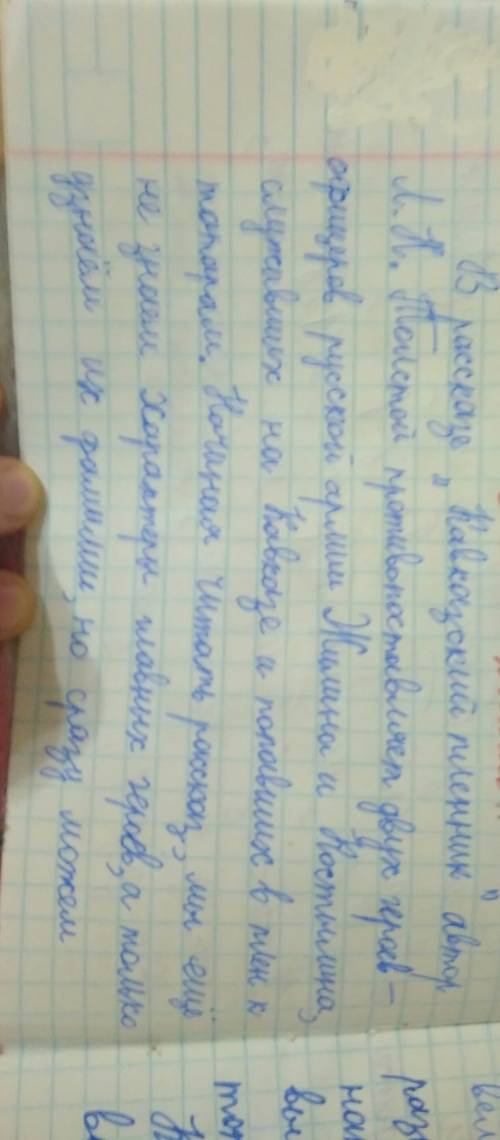 В рассказе "Кавказский пленник" автор
Л. Н. Толстой противопоставляет двух героев –
офицеров русской армии Жилина и Костылина,
служивших на Кавказе и попавших в плен к
татарам. Начиная читать рассказ, мы ещё
не знаем характеры главных героев, а только
узнаём их фамилии, но сразу можем